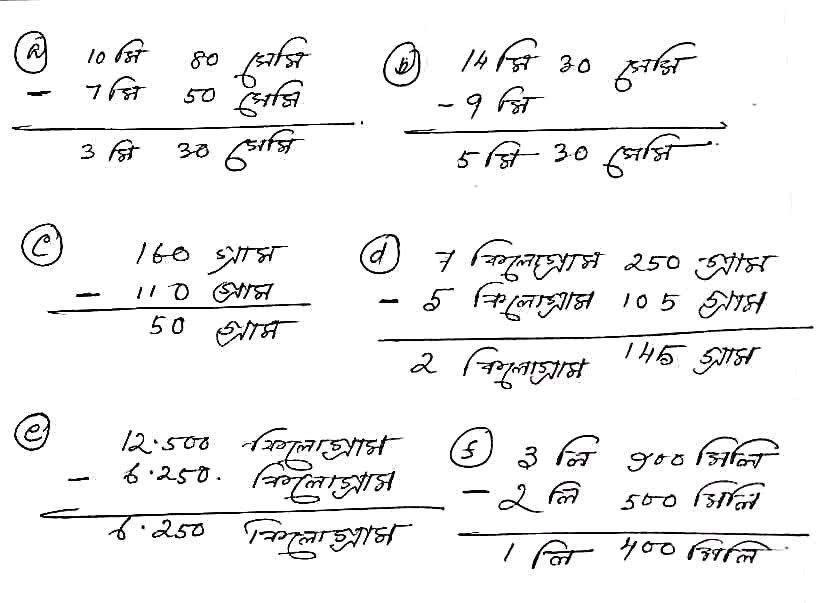 (a) 10 মি 80 সেমি
- 7 মি 50 সেমি
3 মি 30 সেমি
(b) 14 মি 30 সেমি
- 9 মি
5 মি 30 সেমি
(c) 160 গ্রাম
- 110 গ্রাম
50 গ্রাম
(d) 7 কিলোগ্রাম 250 গ্রাম
- 5 কিলোগ্রাম 105 গ্রাম
2 কিলোগ্রাম 145 গ্রাম
(e) 12.500 কিলোগ্রাম
- 6.250. কিলোগ্রাম
6.250 কিলোগ্রাম
(f) 3 লি 900 মিলি
- 2 লি 500 মিলি
1 লি 400 মিলি